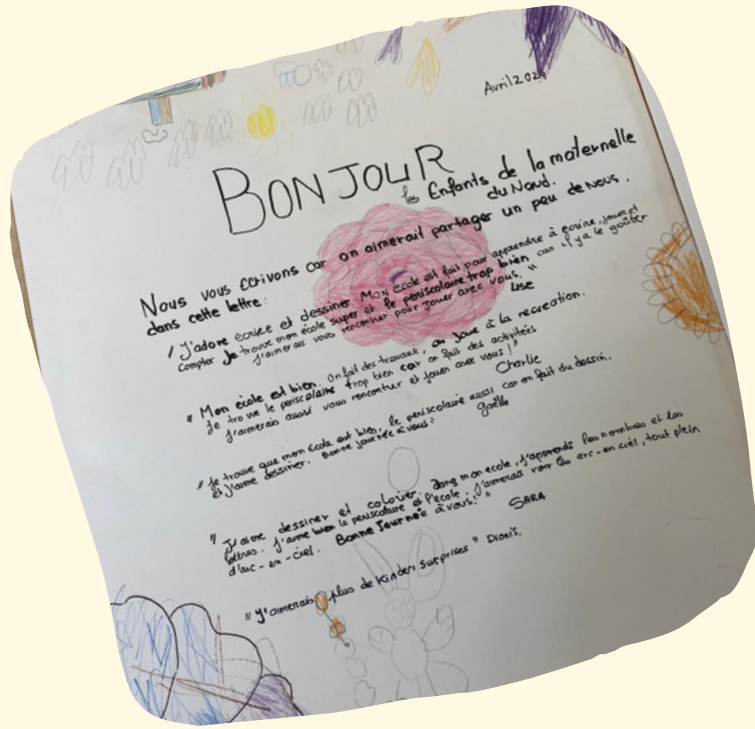 Avril 202
BONJOUR
les Enfants de la maternelle
du Nord.
Nous vous écrivons car on aimerait partager un peu de nous.
dans cette lettre:
"J'adore écrire et dessiner. Mon école est fait pour apprendre à écrire, jouer et
compter. Je trouve mon école super et le periscolaire trop bien car il y a le goûter
J'aimerais vous rencontrer pour jouer avec vous."
Lise
"Mon école est bien. On fait des travaux, on joue à la recreation.
Je trouve le periscolaire trop bien car on fait des activités
J'aimerais aussi vous rencontrer et jouer avec vous!"
Charlie
"Je trouve que mon école est bien, le periscolaire aussi car on fait du dessin.
et j'aime dessiner. Bonne journée à vous!
Gaëlle
"J'aime dessiner et colorier. Dans mon ecole, j'apprends les nombres et les
lettres. J'aime bien le periscolaire et l'école. J'aimerais voir les arc-en ciel, tout plein
d'arc-en-ciel. Bonne Journée à vous!"
SARA
"J'aimerais plus de Kinders surprises"